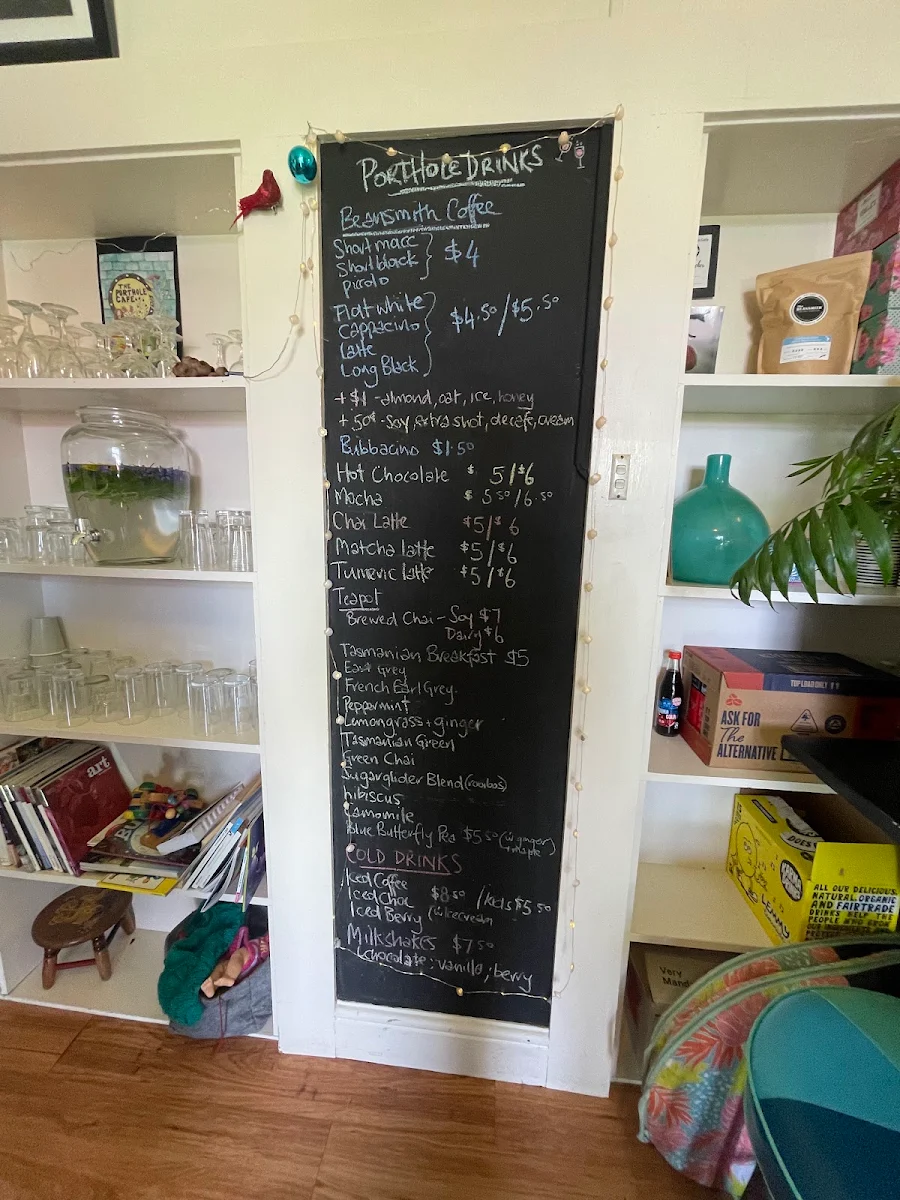 PORTHOLE DRINKS
Beansmith Coffee
Short macc
Short black $4
piccolo
Flat white
Cappacino $4.50/$5.50
Latte
Long Black
+$1 -almond, oat, ice, honey
+.50¢ -Soy, extra shot, decafe, cream
Bibbacino $1.50
Hot Chocolate $5/$6
Mocha $5.50/6.50
Chai Latte $5/$6
Matcha latte $5/$6
Tumeric latte $5/$6
Teapot
Brewed Chai - Soy $7
Dairy $6
Tasmanian Breakfast $5
Earl Grey
French Earl Grey.
Peppermint
Lemongrass + ginger
Tasmanian Green
Green Chai
Sugarglider Blend (rooibos)
hibiscus
Camomile
Blue Butterfly Pea $5.50 (w. ginger)
+ maple
COLD DRINKS
Iced Coffee
Iced Choc $8.50 /kids $5.50
Iced Berry (w. icecream
Milkshakes $7.50
Chocolate; vanilla; berry
THE PORTHOLE CAFE...
art
TOP LOAD ONLY
ASK FOR
The
ALTERNATIVE
LEMMY
ALL OUR DELICIOUS,
NATURAL, ORGANIC
AND FAIRTRADE
DRINKS HELP THE
PEOPLE WHO GROW
Very